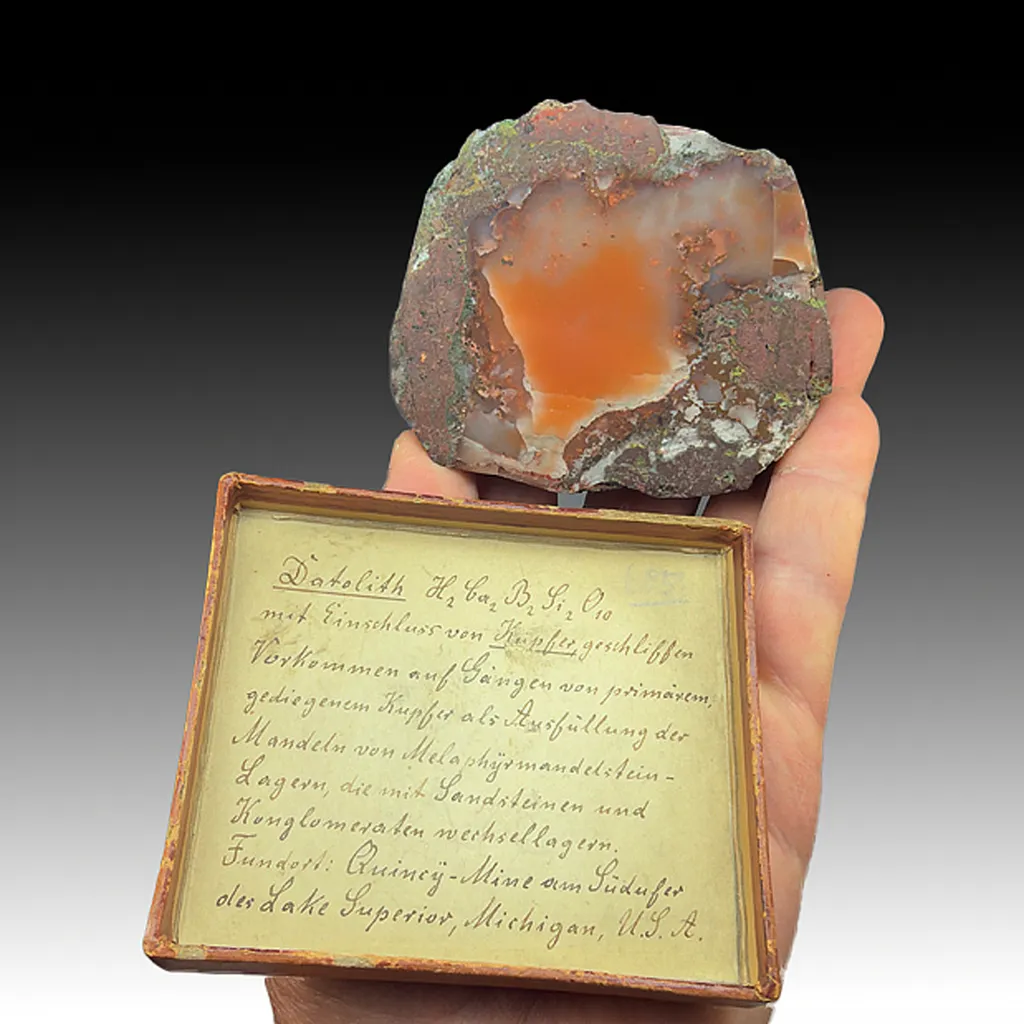 Datolith H₂Ca₂B₂Si₂O₁₀
mit Einschluss von Kupfer, geschliffen
Vorkommen auf Gängen von primärem,
gediegenem Kupfer als Ausfüllung der
Mandeln von Melaphÿrmandelstein-
Lagern, die mit Sandsteinen und
Konglomeraten wechsellagern.
Fundort: Quincÿ-Mine am Südufer
des Lake Superior, Michigan, U.S.A.